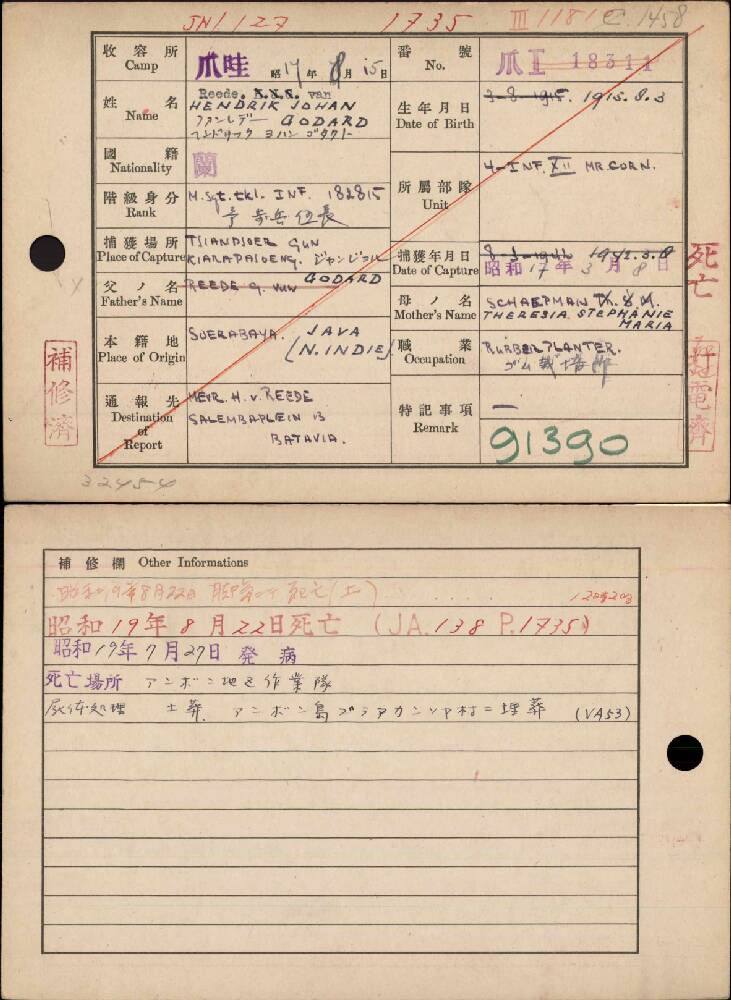 JN1.127 1735 III 1181 C. 1458
收容所 Camp 爪哇 昭17年8月15日
番號 No. 爪II 18311
姓名 Name Reede. van
HENDRIK JOHAN
ファンレデー GODARD
ヘンドリック ヨハン ゴダクト
生年月日 Date of Birth 3-8-1915. 1915.8.3
國籍 Nationality 蘭
階級身分 Rank M.Sgt.tkl. INF. 182815
所屬部隊 Unit 4-INF. XII MR.CORN.
捕獲場所 Place of Capture TSIANDJOER GUN
KIARAPAJOENG. ジャンジュル
捕獲年月日 Date of Capture 8-3-1942 1942.3.8
昭和17年3月8日
父ノ名 Father's Name REEDE G. van GODARD
母ノ名 Mother's Name SCHAEPMAN
THERESIA STEPHANIE
MARIA
本籍地 Place of Origin SOERABAYA. JAVA
(N.INDIE)
職業 Occupation RUBBER PLANTER.
ゴム栽培
通報先 Destination of Report MEVR. H. v. REEDE
SALEMBAPLEIN 13
BATAVIA.
特記事項 Remark —
91390
死亡
補修済
32454
補修欄 Other Informations
昭和19年8月22日 死亡(土)
昭和19年8月22日死亡 (JA.138 P.1735)
昭和19年7月27日 発病
死亡場所 アンボン地区作業隊
屍体処理 土葬. アンボン島 村ニ埋葬 (VA53)